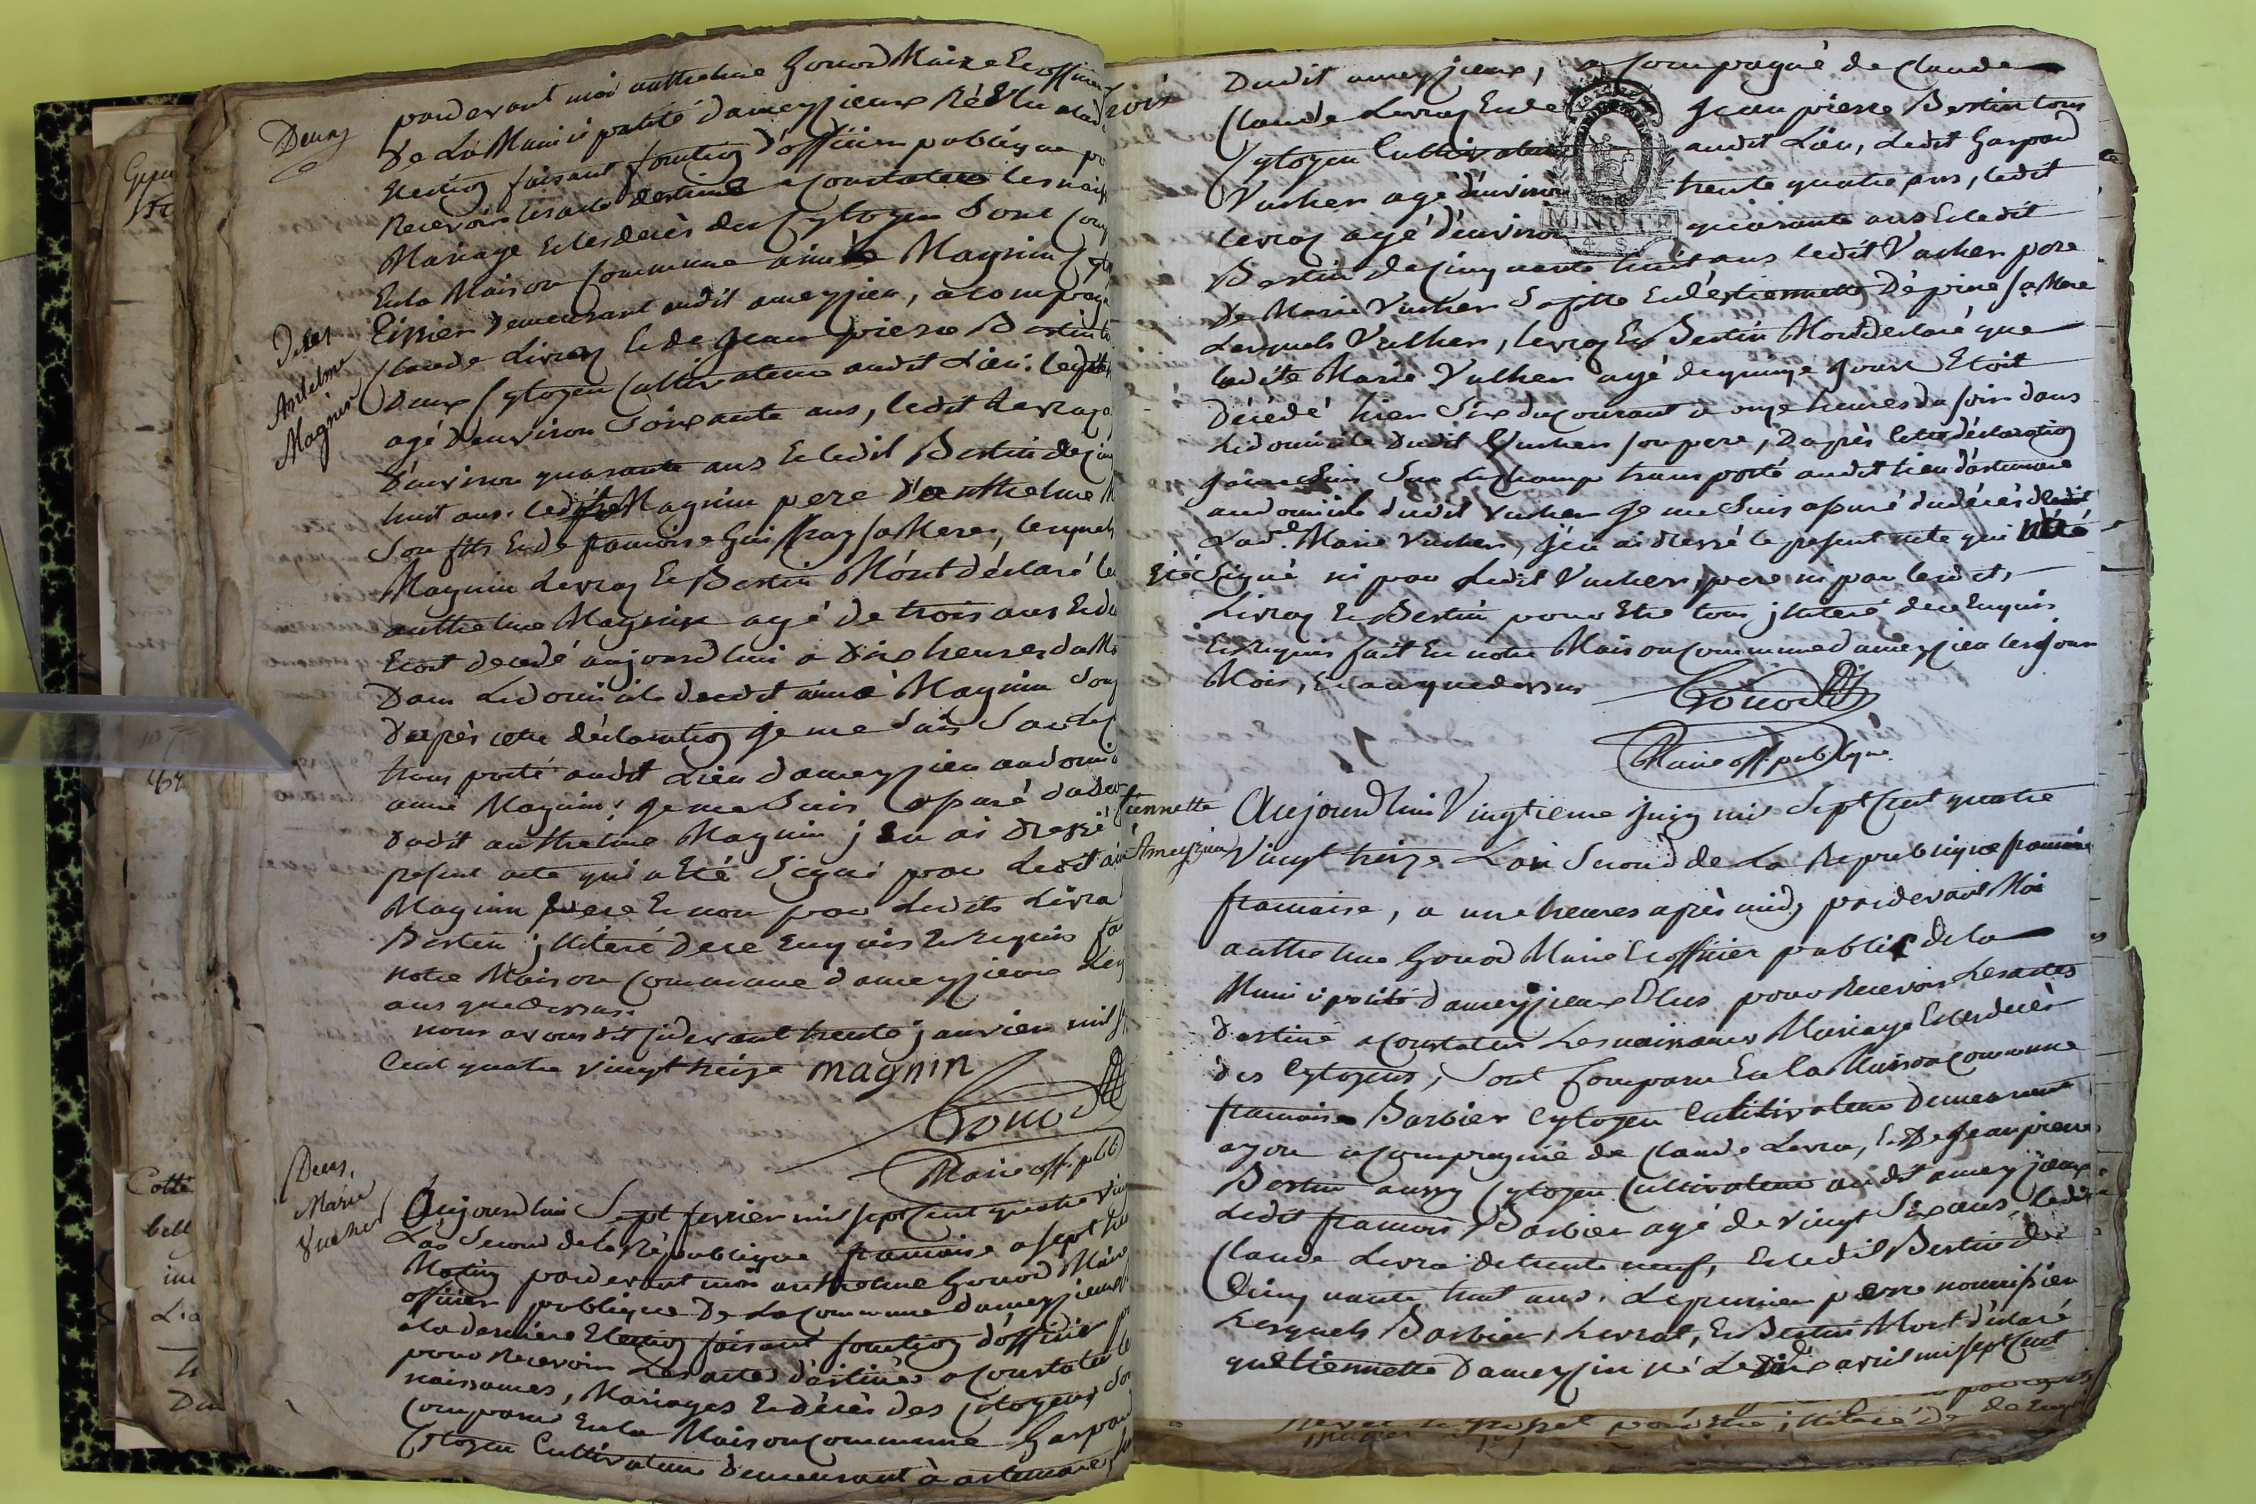 Deces
pardevant moi anthelme Gonod Maire Et officier
De La Municipalité dameyzieux Réélu alad
Election faisant fonction d'officier publique po
Recevoir les actes destiné a Constater les naiss
Mariage Et les decès des Cytoyen Sont Com
En la Maison Commune aimé Magnin
Tissier Demeurant audit ameyzieu, acompagn
Claude Livraz Et de Jean pierre Bertin to
Deux Cytoyen Cultivateur audit Lieu; ledit
agé Denviron Soixante ans, ledit Levraz a
D'environ quarante ans Et ledit Bertin de cin
huit ans. ledit Magnin pere D'anthelme M
Son fils Et de francoise Guiffray sa Mere, lesquels
Magnin Levraz Et Bertin M'ont déclaré le
anthelme Magnin agé de trois ans Et d
Etoit decedé aujourdhui a Dix heures du M
Dans Ledomicile dudit aimé Magnin Son
D'après cette déclaration je me Suis Sur le
transporté audit Lieu dameyzieu audomi
aimé Magnin; je me Suis assuré du Dec
Dudit anthelme Magnin j'en ai Dressé
present acte qui a Eté Signé par Ledit ai
Magnin pere Et non par Lesdits Livra
Bertin illiteré De ce Enquis Et Requis fa
notre Maison Commune dameyzieux Les
ans que Dessus.
nous avons dit cidevant trente janvier mil s
Cent quatre vingt treize magnin
Gonod
Maire off. publi
Deces
Anthelme
Magnin
Deces,
Marie
Vucher
Aujourdhui Sept fevrier mil sept Cent quatre vin
L'an Second de la République francaise a sept heu
Matin pardevant moi anthelme Gonod Maire
officier publique De La Commune dameyzieux
a la derniere Election faisant fonction d'officier
pour Recevoir Les actes déstinés a Constater le
naissances, Mariages Et décès des Citoyens So
Comparu En la Maison Commune Gaspard
Cytoyen Cultivateur Demeurant à artemare
Dudit ameyzieux, acompagné de Claude
Claude Levraz Et de Jean pierre Bertin tous
Cytoyen Cultivateur audit Lieu, Ledit Gaspard
Vucher agé d'environ trente quatre ans, ledit
Levraz agé d'environ quarante ans Et ledit
Bertin de Cinquante huit ans ledit Vucher pere
De Marie Vucher Sa fille Et d'Etiennette Dépine sa Mere
Lesquels Vucher, Levraz Et Bertin M'ont declaré que
ladite Marie Vucher agé de quinze jours Etoit
Décédé hier Six du Courant a onze heures du soir dans
Ledomicile Dudit Vucher son pere, D'après cette déclaration
je me Suis Sur Lechamp transporté audit lieu d'artemare
au domicile dudit Vucher je me Suis assuré du décès de
Lad.e Marie Vucher, j'en ai dressé le present acte qui n'a
été Signé ni par Ledit Vucher, pere ni par lesdits
Livraz Et Bertin pour Etre tous illiteré de ce Enquis
Et Requis fait En notre Maison Commune dameyzieu les jour
Mois, Et an que dessus
Gonod
Maire off. publique
MINUTE
4 S
Etiennette
Ameyzieu
Aujourdhui Vingtieme juin mil Sept Cent quatre
Vingt treize L'an Second de La Republique francaise
francaise, a une heures après midy pardevant Moi
anthelme Gonod Maire Et officier public de la
Municipalité dameyzieux Elus pour Recevoir Les actes
Destiné a Constater Les naissances Mariage Et les decès
des Cytoyens, Sont Comparu En la Maison Commune
francois Barbier Cytoyen Cultivateur Demeurant
ayon acompagné de Claude Levra, Et De Jean pierre
Bertin aussy Cytoyen Cultivateur audit ameyzieux
Ledit francois Barbier agé de vingt Six ans, ledit
Claude Livra de trente neuf, Et ledit Bertin de
Cinquante huit ans. Le premier pere nourrissier
Lesquels Barbier, Levrat, Et Bertin M'ont déclaré
qu'Etiennette Dameyzin né Le dix avril mil sept Cent